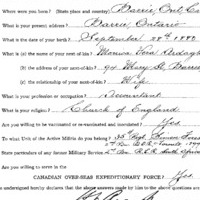 Where were you born? (State place and country) Barrie Ont C
What is your present address? Barrie Ontario
What is the date of your birth? September 28th 1880
What is (a) the name of your next-of-kin?
What is (b) the address of your next-of-kin? Mary St. Barrie
What is (c) the relationship of your next-of-kin? Wife
What is your profession or occupation? Accountant
What is your religion? Church of England
Are you willing to be vaccinated or re-vaccinated and inoculated? Yes
To what Unit of the Active Militia do you belong? 35th Regt Simcoe Foresters
State particulars of any former Military Service
Are you willing to serve in the
CANADIAN OVER-SEAS EXPEDITIONARY FORCE? Yes
undersigned hereby declares that the above answers made by him to the above questions a